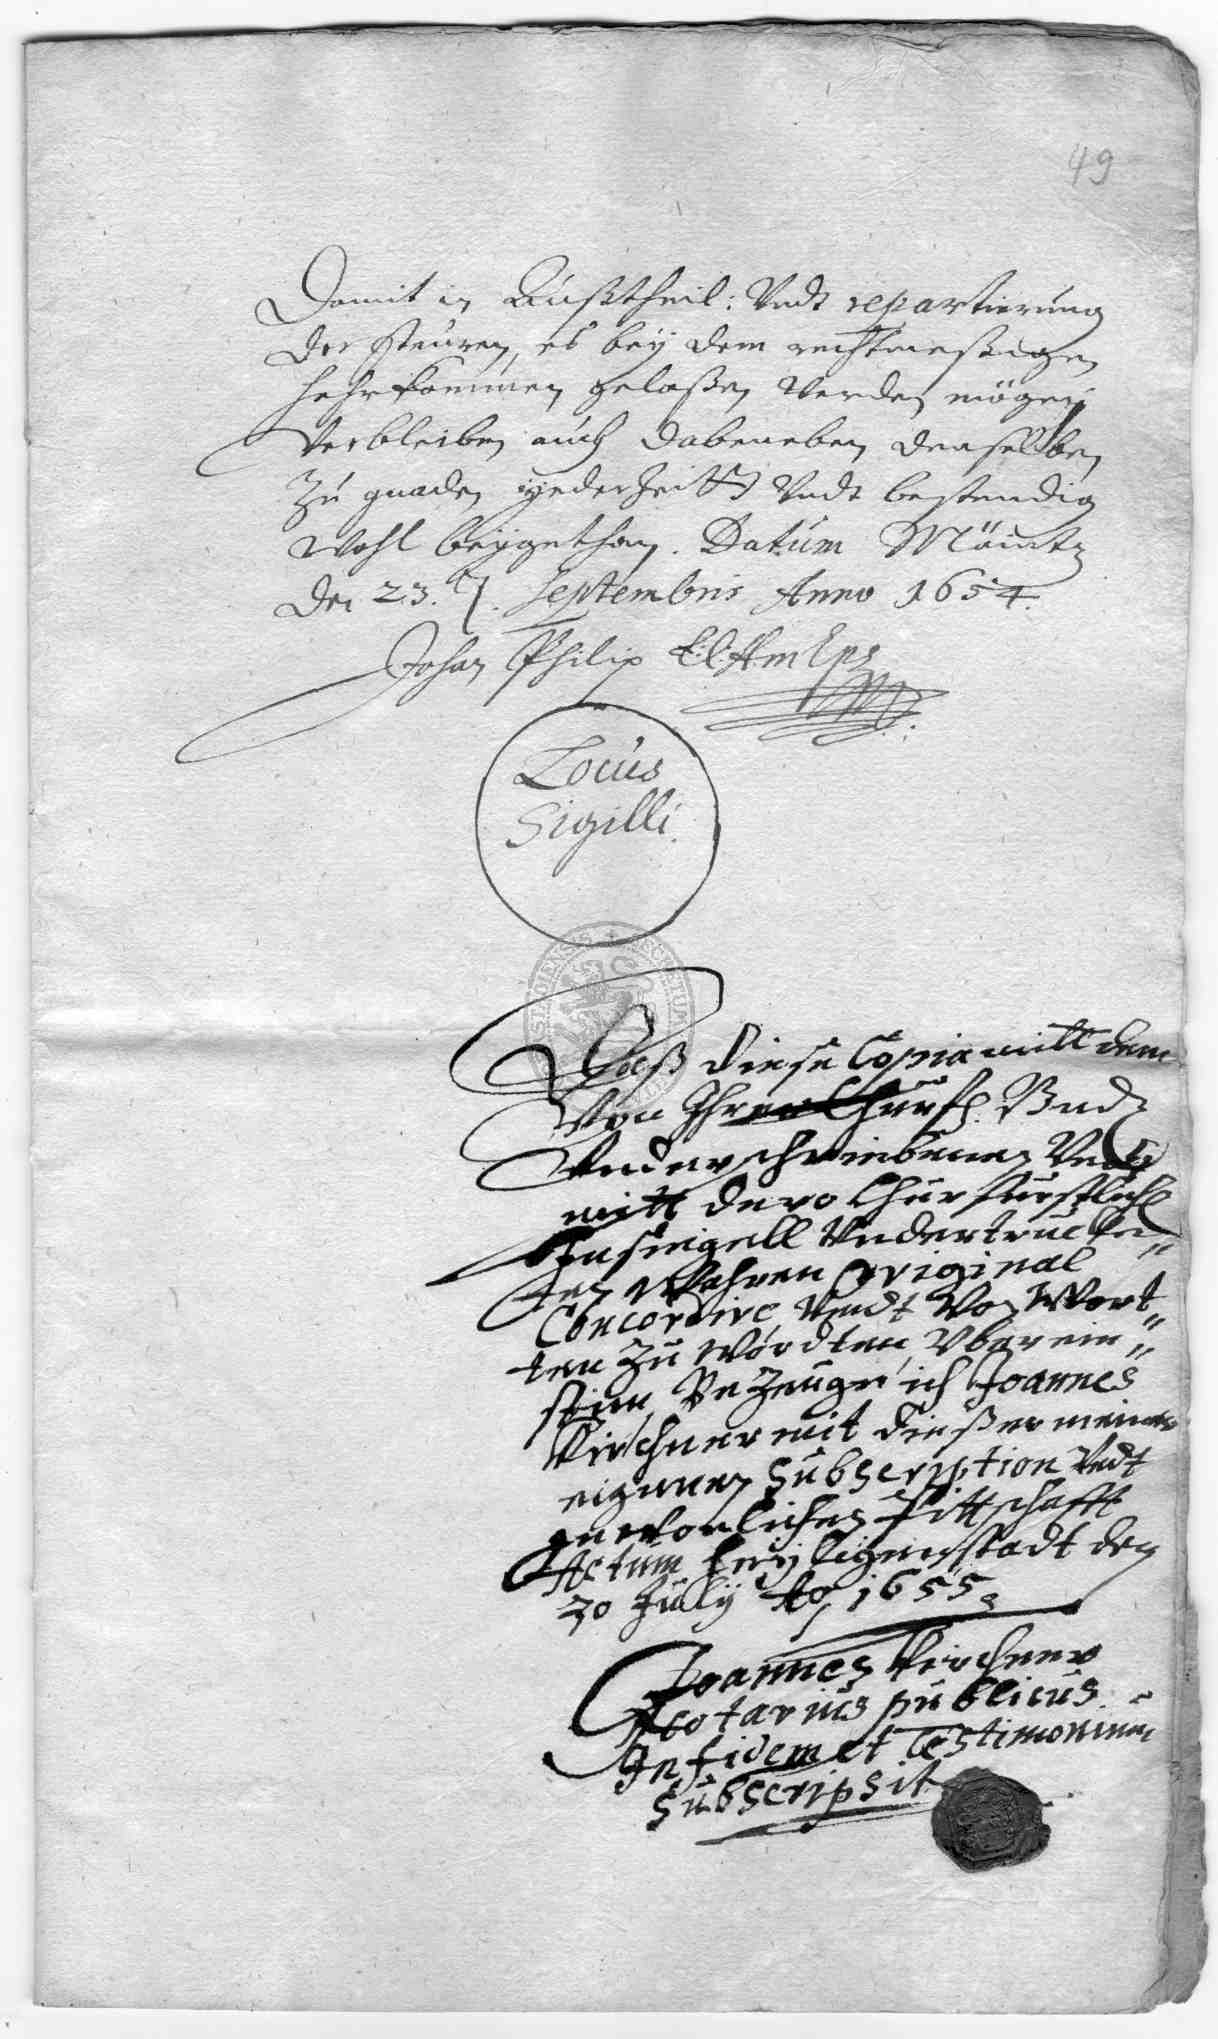 49
Damit in Außtheil: Undt repartierung
der steuren, es bey dem rechtmeßigen
hehrkommen gelaßen werden mögen
Verbleiben auch dabeneben denselben
zu gnaden jederzeitt Undt bestendig
wohl beygethan. Datum Maintz
den 23. 7. Septembris Anno 1654.
Johan Philip
Locus
Sigilli
Daß diese Copia mitt dem
Von Ihrer Churfl. Gnd.
Underschriebenen Undt
mitt dero Churfürstlich
Insiegell Undertrucke"
ten Wahren Original
Concordire, Undt Von Wort"
ten zu Wordten Uberein"
stim, Bezeuge ich Joannes
Kirchner mit dießer meiner
eigenen Subscription Undt
gewonlichen Pittschafft
Actum Heyligenstadt den
20 July Ao 1655
Joannes Kirchner
Notarius publicus
In fidem et Testimonium
Subscripsit